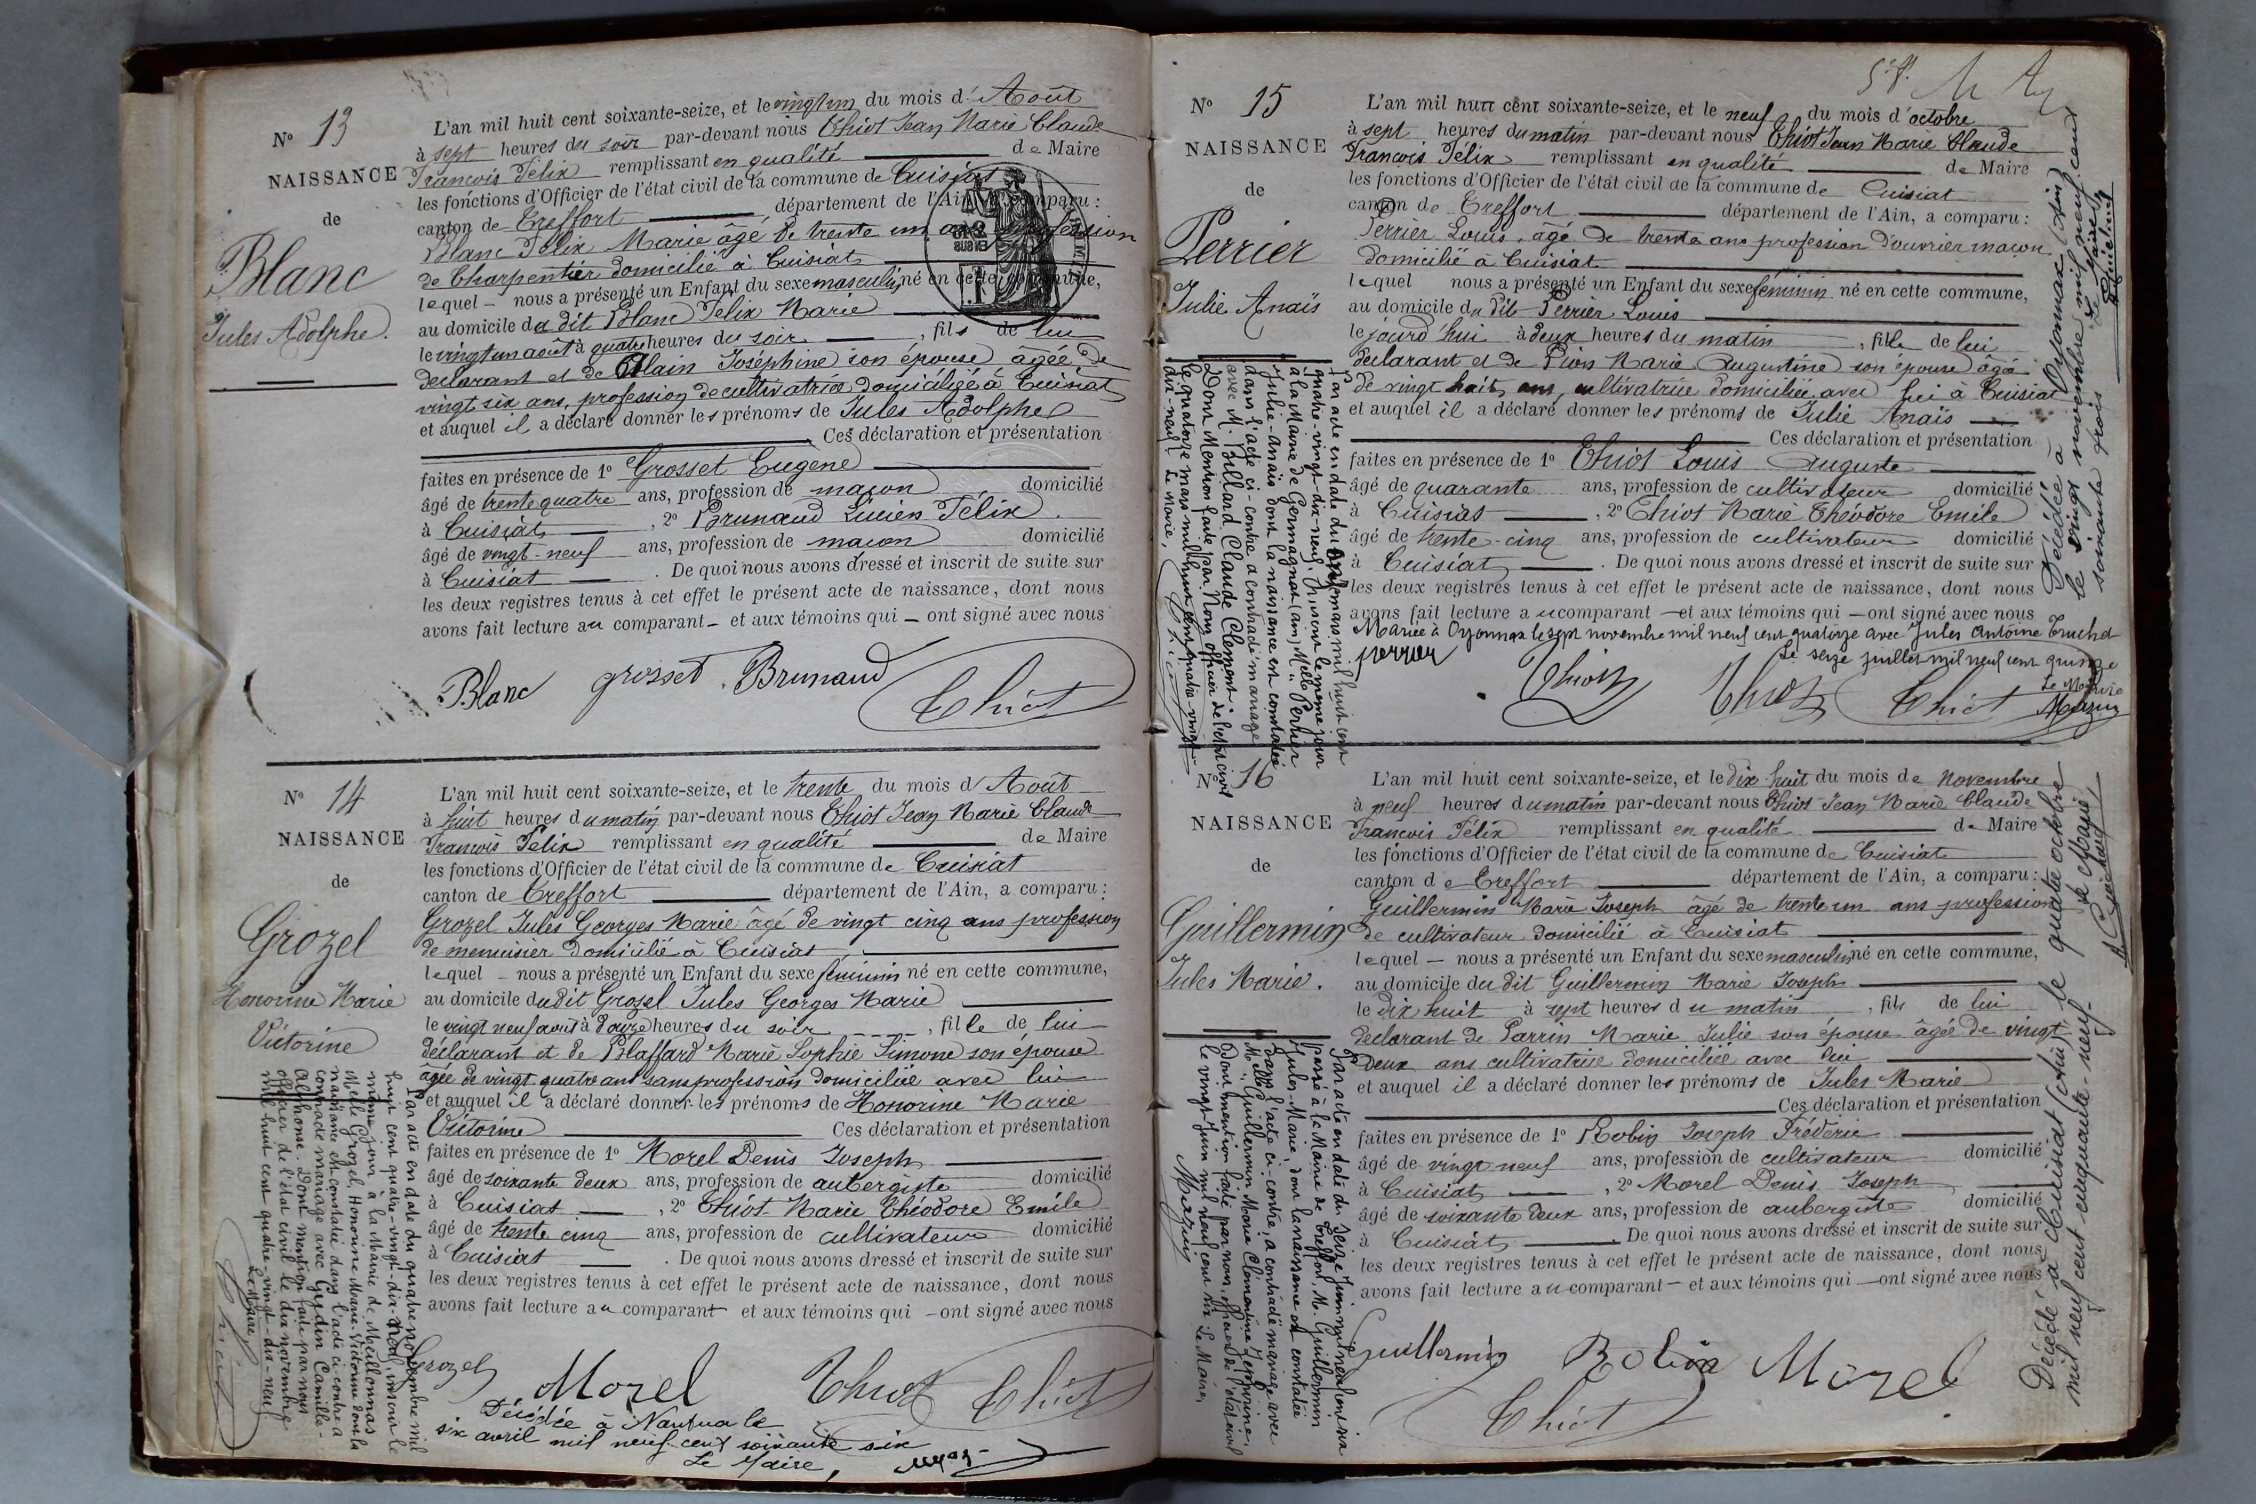 N° 13
NAISSANCE
de
Blanc
Jules Adolphe.
L'an mil huit cent soixante-seize, et le vingt un du mois d'Août
à sept heures du soir par-devant nous Thiot Jean Marie Claude
François Félix remplissant en qualité de Maire
les fonctions d'Officier de l'état civil de la commune de Cuisiat
canton de Treffort département de l'Ain, a comparu :
Blanc Félix Marie âgé de trente un ans profession
de Charpentier domicilié à Cuisiat
lequel nous a présenté un Enfant du sexe masculin né en cette commune,
au domicile du dit Blanc Félix Marie
le vingt un août à quatre heures du soir, fils de lui
déclarant et de Alain Joséphine son épouse âgée de
vingt six ans, profession de cultivatrice domiciliée à Cuisiat
et auquel il a déclaré donner les prénoms de Jules Adolphe
Ces déclaration et présentation
faites en présence de 1° Grosset Eugène
âgé de trente quatre ans, profession de maçon domicilié
à Cuisiat, 2° Brunaud Lucien Félix
âgé de vingt-neuf ans, profession de maçon domicilié
à Cuisiat. De quoi nous avons dressé et inscrit de suite sur
les deux registres tenus à cet effet le présent acte de naissance, dont nous
avons fait lecture au comparant et aux témoins qui ont signé avec nous
Blanc grosset Brunaud Thiot
N° 14
NAISSANCE
de
Grozel
Honorine Marie
Victorine
L'an mil huit cent soixante-seize, et le trente du mois d'Août
à huit heures du matin par-devant nous Thiot Jean Marie Claude
François Félix remplissant en qualité de Maire
les fonctions d'Officier de l'état civil de la commune de Cuisiat
canton de Treffort département de l'Ain, a comparu :
Grozel Jules Georges Marie âgé de vingt cinq ans profession
de menuisier domicilié à Cuisiat
lequel nous a présenté un Enfant du sexe féminin né en cette commune,
au domicile du dit Grozel Jules Georges Marie
le vingt neuf août à douze heures du soir, fille de lui
déclarant et de Blaffard Marie Sophie Simone son épouse
âgée de vingt quatre ans sans profession domiciliée avec lui
et auquel il a déclaré donner les prénoms de Honorine Marie
Victorine Ces déclaration et présentation
faites en présence de 1° Morel Denis Joseph
âgé de soixante deux ans, profession de aubergiste domicilié
à Cuisiat, 2° Thiot Marie Théodore Emile
âgé de trente cinq ans, profession de cultivateur domicilié
à Cuisiat. De quoi nous avons dressé et inscrit de suite sur
les deux registres tenus à cet effet le présent acte de naissance, dont nous
avons fait lecture au comparant et aux témoins qui ont signé avec nous
Grozel Morel Thiot Thiot
Décédée à Nantua le
six avril mil neuf cent soixante six
Le Maire,
Par acte en date du quatre novembre mil
huit cent quatre-vingt-dix-neuf, inscrit le
même jour à la Mairie de Meillonnas
Melle Grozel, Honorine-Marie-Victorine dont la
naissance est constatée dans l'acte ci-contre a
contracté mariage avec Gardin Camille-
Alphonse. Dont mention faite par nous
officier de l'état civil le dix novembre
mil huit cent quatre-vingt-dix-neuf
Le Maire
Thiot
N° 15
NAISSANCE
de
Perrier
Julie Anaïs
L'an mil huit cent soixante-seize, et le neuf du mois d'octobre
à sept heures du matin par-devant nous Thiot Jean Marie Claude
François Félix remplissant en qualité de Maire
les fonctions d'Officier de l'état civil de la commune de Cuisiat
canton de Treffort département de l'Ain, a comparu :
Perrier Louis, âgé de trente ans profession d'ouvrier maçon
domicilié à Cuisiat
lequel nous a présenté un Enfant du sexe féminin né en cette commune,
au domicile du dit Perrier Louis
le jourd'hui à deux heures du matin, fille de lui
déclarant et de Pion Marie Augustine son épouse âgée
de vingt huit ans, cultivatrice domiciliée avec lui à Cuisiat
et auquel il a déclaré donner les prénoms de Julie Anaïs
Ces déclaration et présentation
faites en présence de 1° Thiot Louis Auguste
âgé de quarante ans, profession de cultivateur domicilié
à Cuisiat, 2° Thiot Marie Théodore Emile
âgé de trente-cinq ans, profession de cultivateur domicilié
à Cuisiat. De quoi nous avons dressé et inscrit de suite sur
les deux registres tenus à cet effet le présent acte de naissance, dont nous
avons fait lecture au comparant et aux témoins qui ont signé avec nous
Mariée à Oyonnax le sept novembre mil neuf cent quatorze avec Jules Antoine Truchet
Le seize juillet mil neuf cent quinze
Le Maire
Mazuy
perrier Thiot Thiot Thiot
Par acte en date du onze mars mil huit cent
quatre-vingt-dix-neuf, inscrit le même jour
à la Mairie de Germagnat (Ain) Melle Perrier
Julie-Anaïs dont la naissance est constatée
dans l'acte ci-contre a contracté mariage
avec M. Billard Claude Clément
Dont Mention faite par Nous officier de l'état civil
le quatorze mars mil huit cent quatre-vingt-
dix-neuf Le Maire,
Thiot
Décédée à Oyonnax (Ain)
le vingt novembre mil neuf cent
soixante trois Le Maire
N° 16
NAISSANCE
de
Guillermin
Jules Marie.
L'an mil huit cent soixante-seize, et le dix huit du mois de novembre
à neuf heures du matin par-devant nous Thiot Jean Marie Claude
François Félix remplissant en qualité de Maire
les fonctions d'Officier de l'état civil de la commune de Cuisiat
canton de Treffort département de l'Ain, a comparu :
Guillermin Marie Joseph âgé de trente un ans profession
de cultivateur domicilié à Cuisiat
lequel nous a présenté un Enfant du sexe masculin né en cette commune,
au domicile du dit Guillermin Marie Joseph
le dix huit à sept heures du matin, fils de lui
déclarant de Parrin Marie Julie son épouse âgée de vingt
deux ans cultivatrice domiciliée avec lui
et auquel il a déclaré donner les prénoms de Jules Marie
Ces déclaration et présentation
faites en présence de 1° Robin Joseph Fréderic
âgé de vingt neuf ans, profession de cultivateur domicilié
à Cuisiat, 2° Morel Denis Joseph
âgé de soixante deux ans, profession de aubergiste domicilié
à Cuisiat. De quoi nous avons dressé et inscrit de suite sur
les deux registres tenus à cet effet le présent acte de naissance, dont nous
avons fait lecture au comparant et aux témoins qui ont signé avec nous
Guillermin Robin Morel
Thiot
Par acte en date du Seize Juin mil neuf cent six
passé à la Mairie de Treffort, M. Guillermin
Jules-Marie, dont la naissance est constatée
dans l'acte ci-contre, a contracté mariage avec
Melle Guillermin Marie Clémentine Zéphirine.
Dont mention faite par nous, officier de l'état civil
le vingt Juin mil neuf cent six Le Maire,
Mazuy
Décédé à Cuisiat (Ain) le quatre octobre
mil neuf cent cinquante-neuf.
Le Maire,